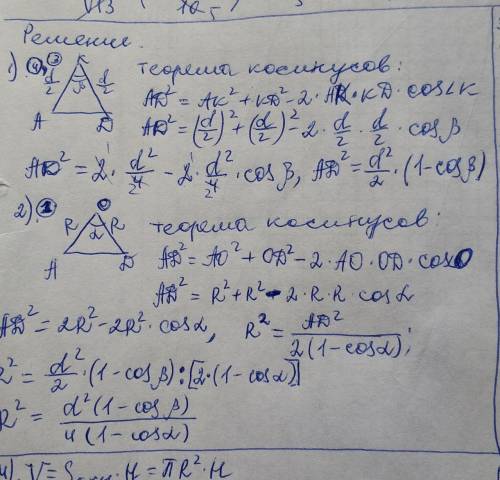 Решение.
1) K
d/2 β d/2
A D
теорема косинусов:
AD² = AK² + KD² - 2 · AK · KD · cos∠K
AD² = (d/2)² + (d/2)² - 2 · d/2 · d/2 · cos β
AD² = 2 · d²/4 - 2 · d²/4 · cos β, AD² = d²/2 · (1 - cos β)
2) O
R R
α
A D
теорема косинусов:
AD² = AO² + OD² - 2 · AO · OD · cos O
AD² = R² + R² - 2 · R · R · cos α
AD² = 2R² - 2R² · cos α, R² = AD²/2(1 - cos α);
R² = d²/2 · (1 - cos β) : [2 · (1 - cos α)]
R² = d²(1 - cos β)/4(1 - cos α)
· H = πR² · H